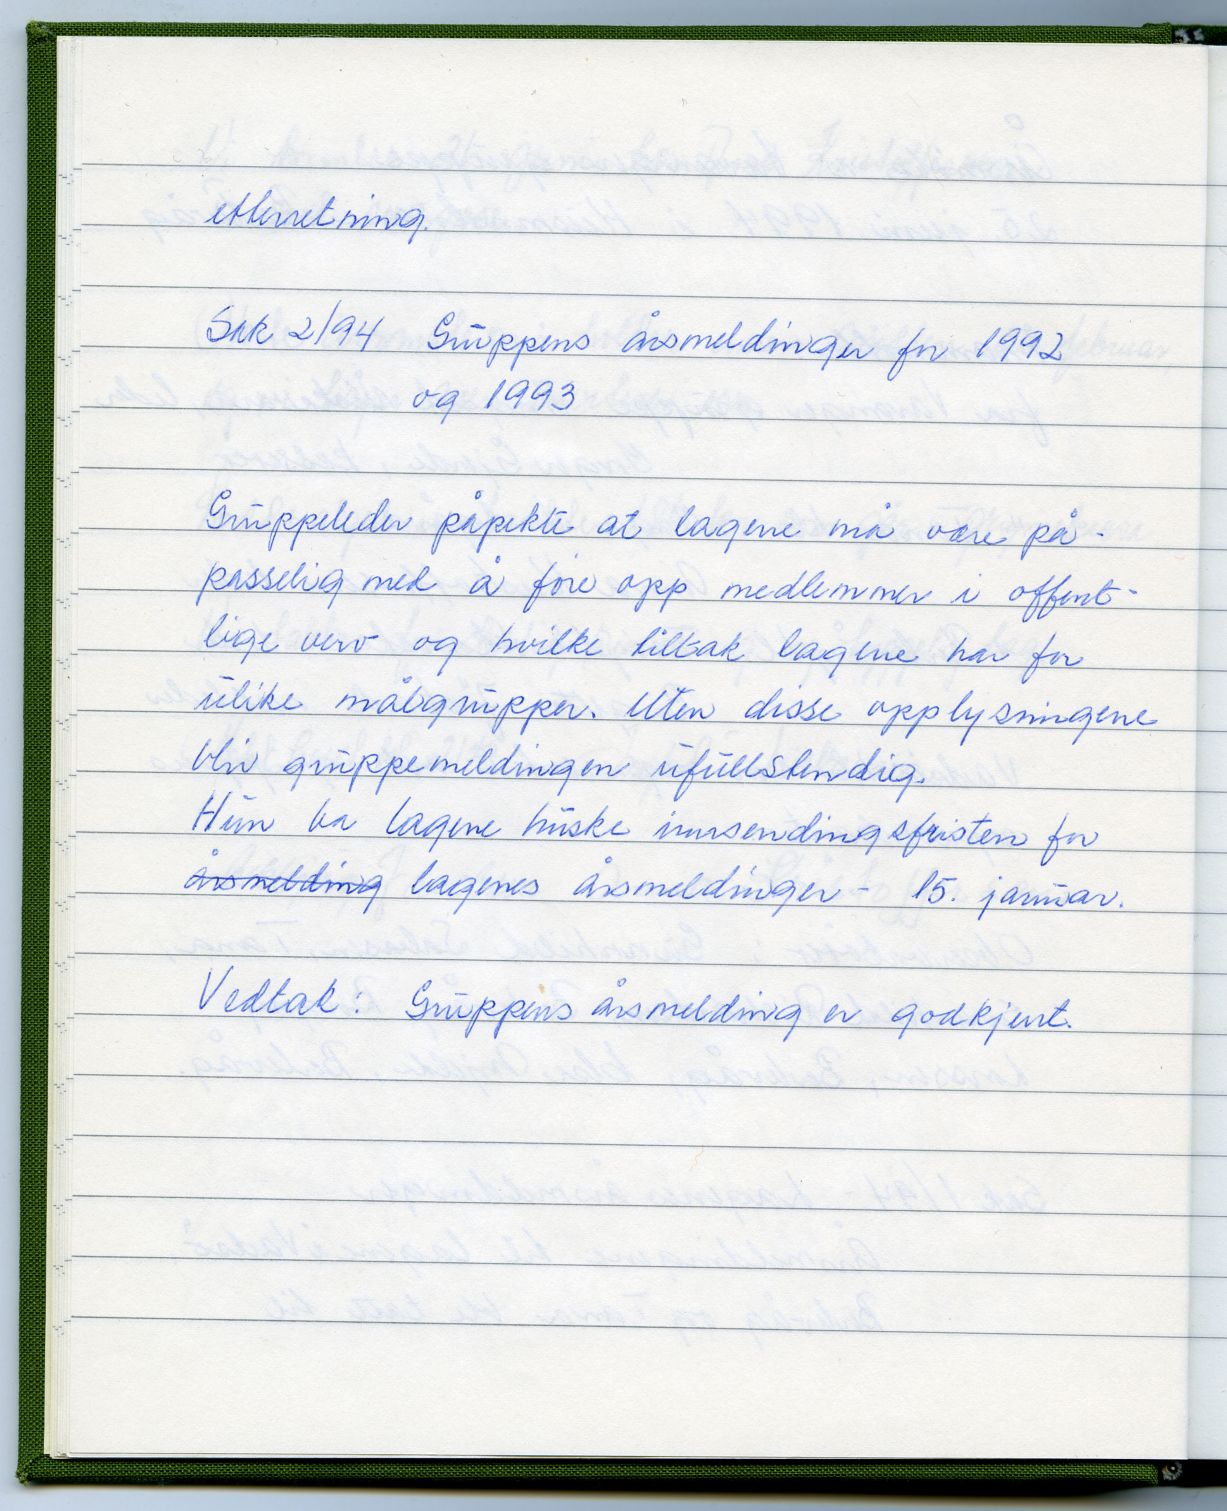 etterretning.
Sak 2/94 Gruppens årsmeldinger for 1992
og 1993
Gruppeleder påpekte at lagene må være på-
passelig med å føre opp medlemmer i offent-
lige verv og hvilke tiltak lagene har for
ulike målgrupper. Uten disse opplysningene
blir gruppemeldingen ufullstendig.
Hun ba lagene huske innsendingsfristen for
årsmelding lagenes årsmeldinger - 15. januar.
Vedtak: Gruppens årsmelding er godkjent.